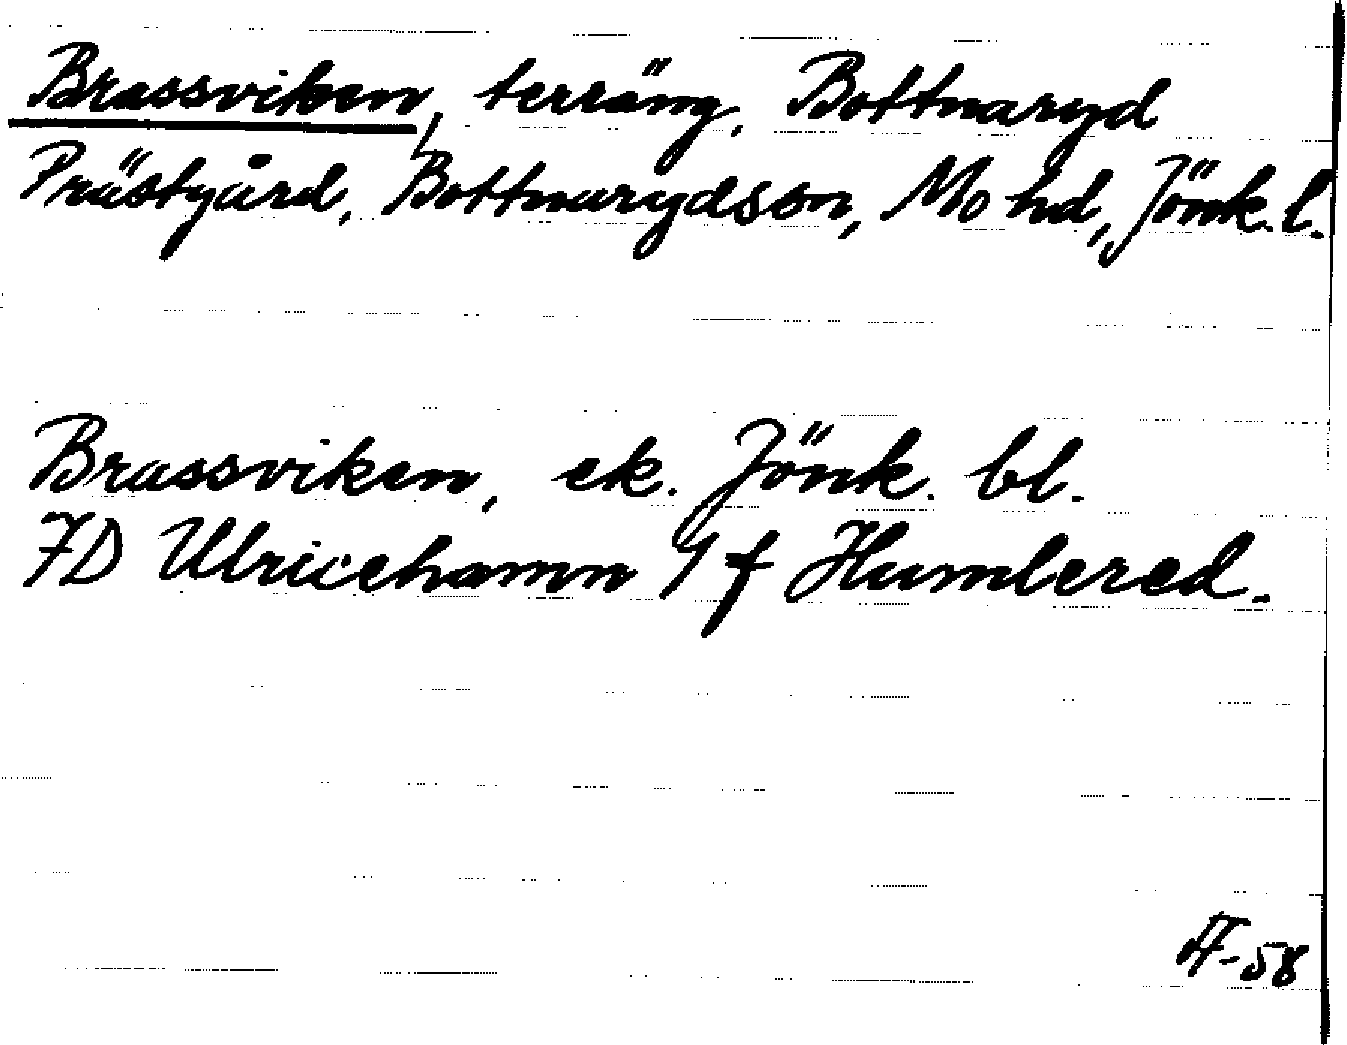 Brassviken, terräng, Bottnaryd
Prästgård, Bottnarydssn, Mo hd, Jönk. l.
Brassviken, ek. Jönk. bl.
7D Ulricehamn 9 f Humlered.
AF-58